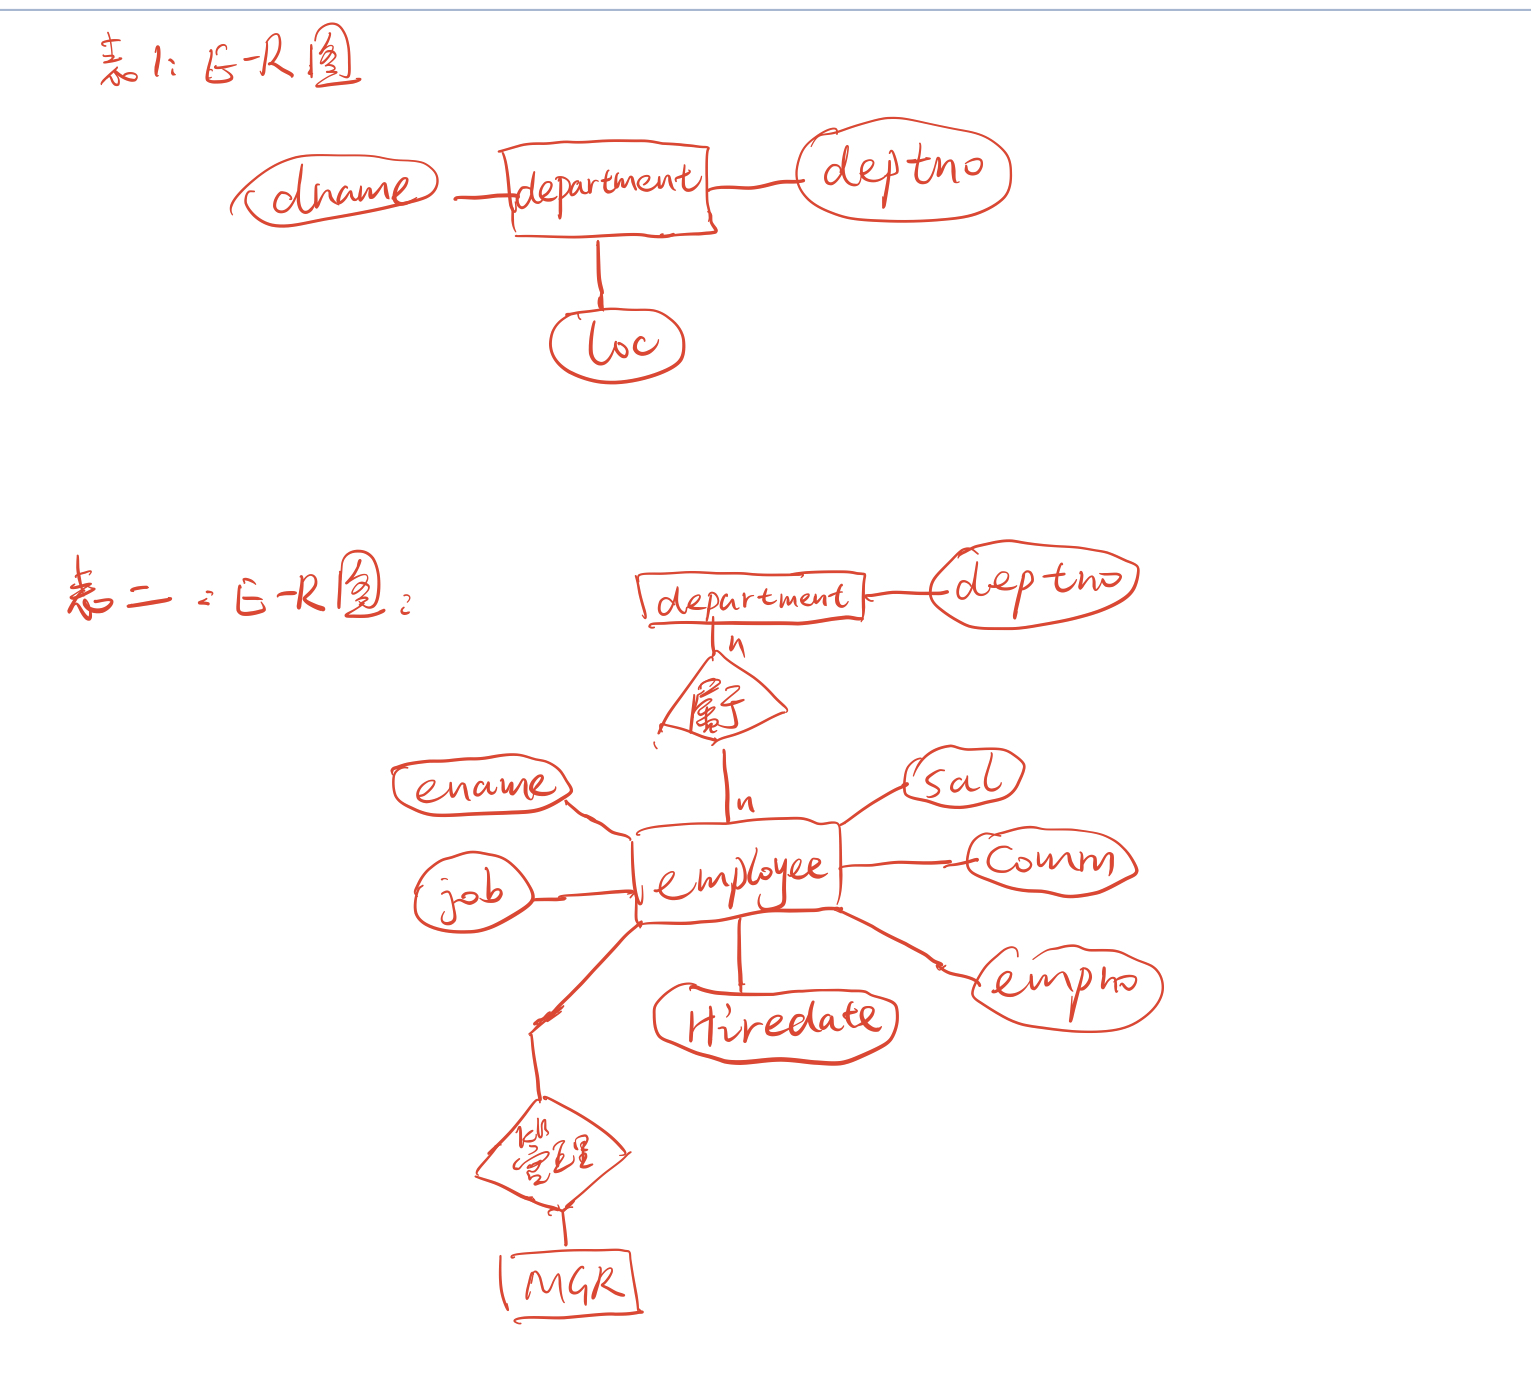 表1: E-R图
dname
department
deptno
loc
表二：E-R图：
department
deptno
n
属于
n
ename
sal
employee
comm
job
empno
Hiredate
管理
MGR